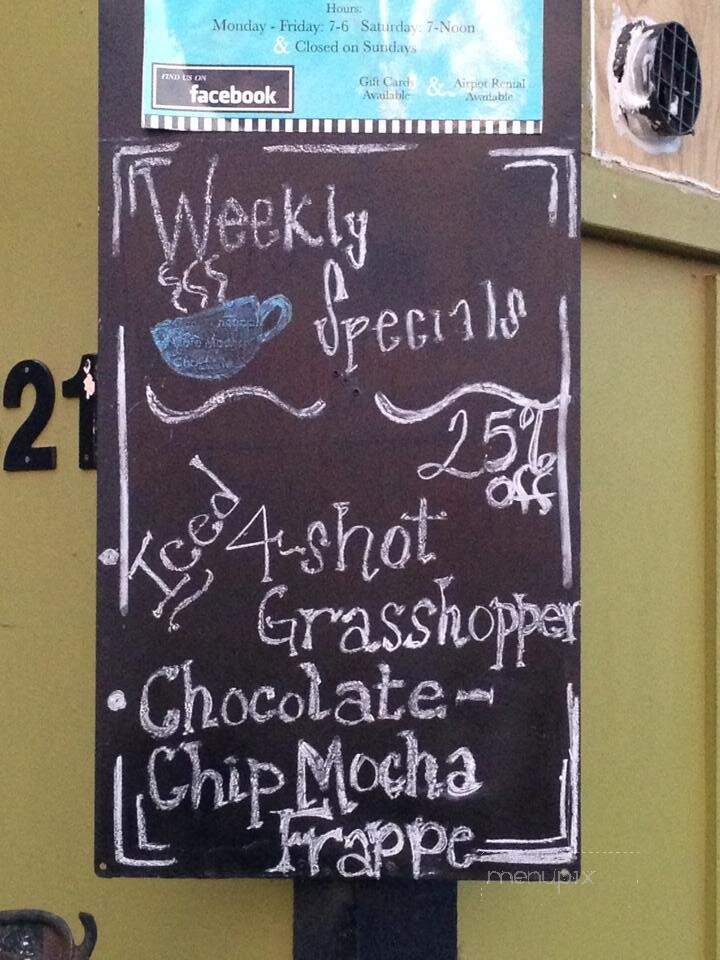 Hours:
Monday - Friday: 7-6 Saturday: 7-Noon
& Closed on Sundays
FIND US ON
facebook
Gift Cards
Available
&
Airpot Rental
Available
Weekly
Specials
25%
off
21
• Iced 4-shot
Grasshopper
• Chocolate-
Chip Mocha
Frappe
menupix